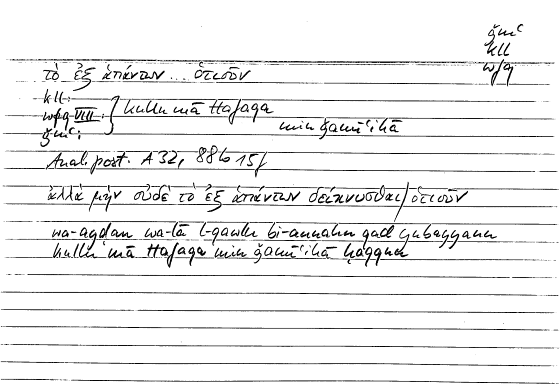 ǧmʿ
kll
wfq
τὸ ἐξ ἁπάντων ... ὁτιοῦν
kll:
wfq VIII: } kullu mā ttafaqa
ǧmʿ: min ǧamīʿihā
Anal. post. A 32, 88b 15f
ἀλλὰ μὴν οὐδὲ τὸ ἐξ ἁπάντων δείκνυσθαι/ὁτιοῦν
wa-ayḍan wa-lā l-qawlu bi-annahu qad yubayyanu
kullu mā ttafaqa min ǧamīʿihā ḥaqqun